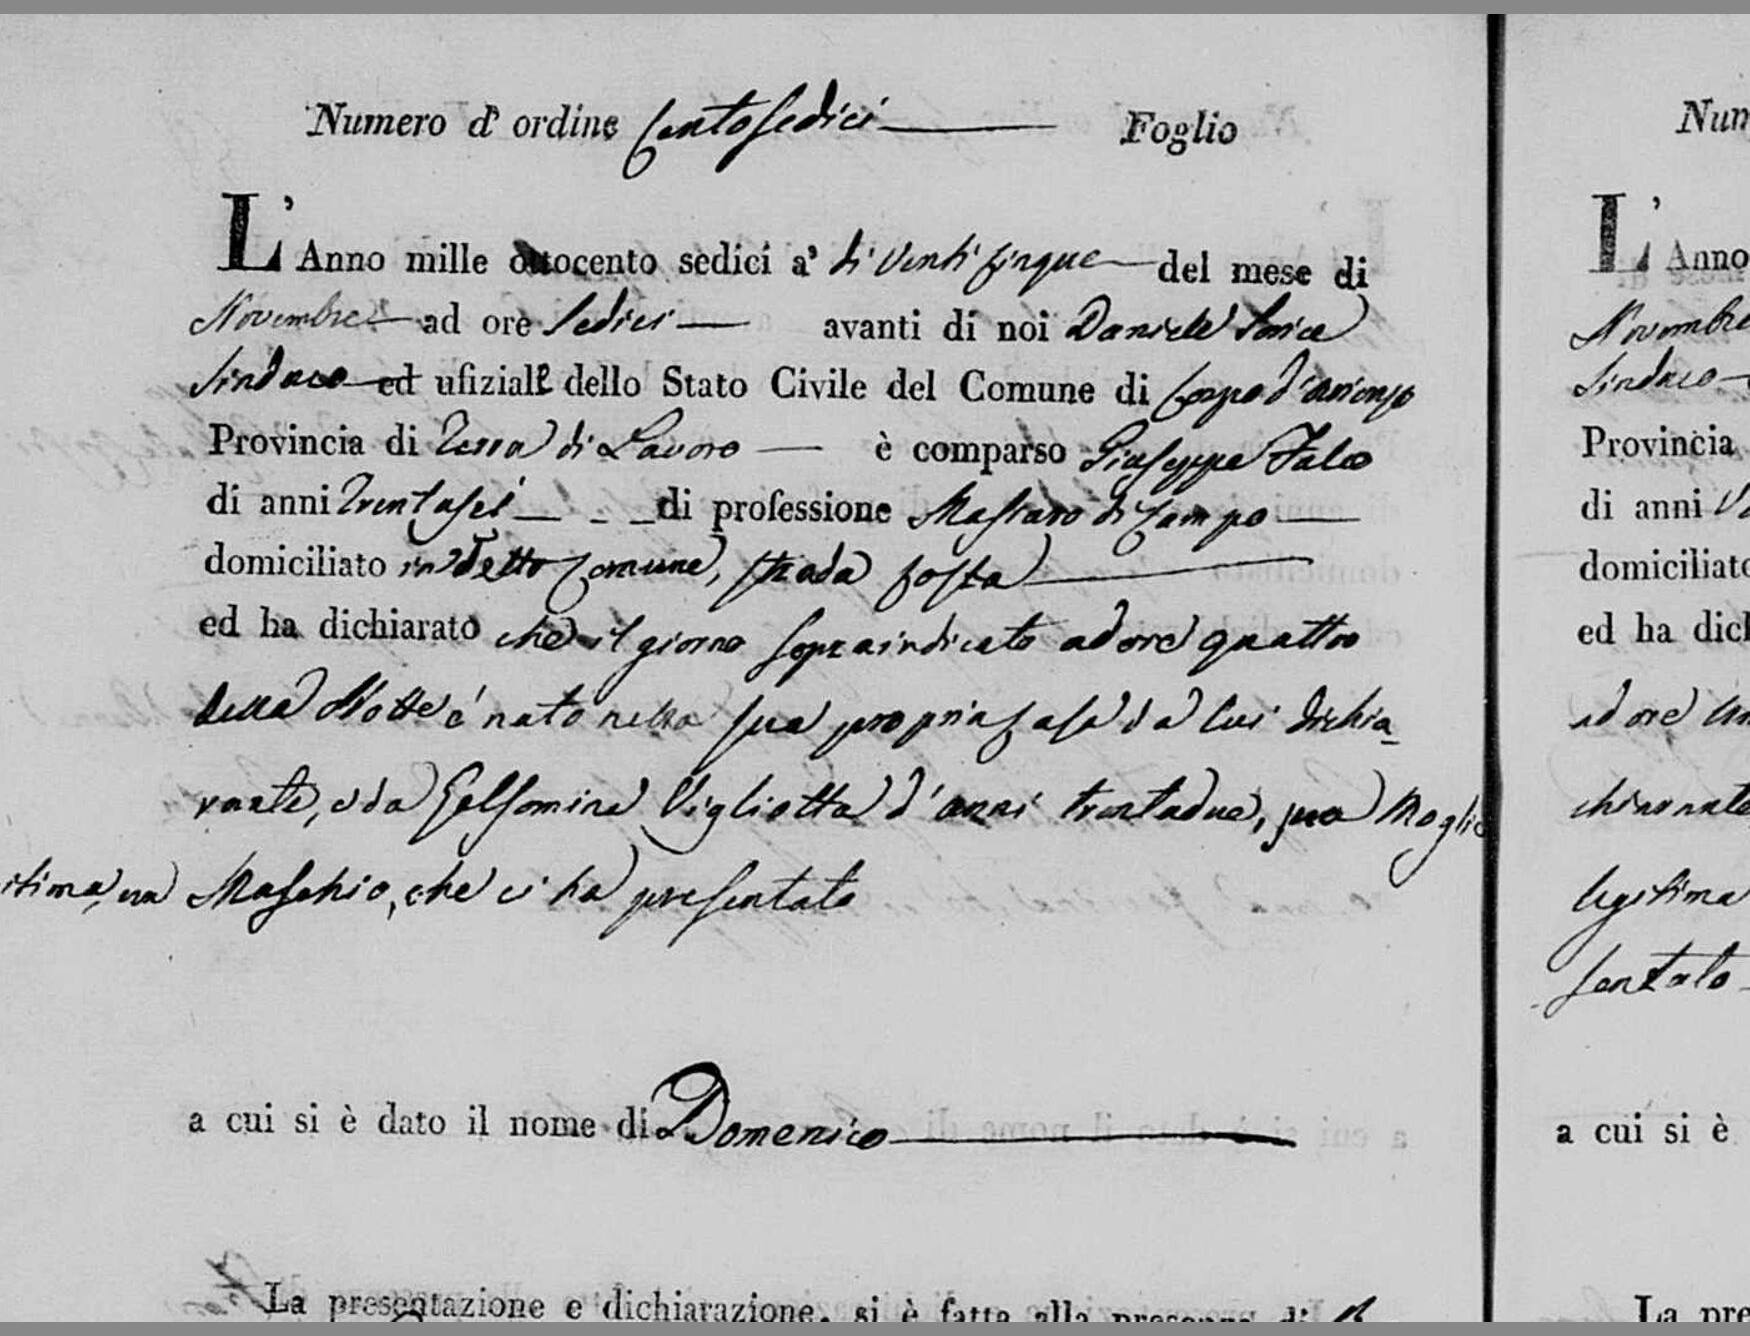 Numero d' ordine Centosedici Foglio
L'Anno mille ottocento sedici a' di Venti Cinque del mese di
Novembre ad ore Sedici avanti di noi Daniele
Sindaco ed ufiziale dello Stato Civile del Comune di d'arienzo
Provincia di Terra di Lavoro è comparso Giuseppe Falco
di anni Trentasei di professione Massaro di Campo
domiciliato in detto Comune, strada
ed ha dichiarato che il giorno sopraindicato ad ore quattro
della Notte é nato nella sua propria Casa da lui dichia-
rante, e da Gelsomina Vigliotta d'anni trentadue, sua Moglie
itima, un Maschio, che ci ha presentato
a cui si è dato il nome di Domenico
La presentazione e dichiarazione, si è fatta alla presenza di
Num
L'Anno
Novembre
Sindaco
Provincia
di anni
domiciliato
ed ha dich
ad ore
legitima
sentato
a cui si è
La pre